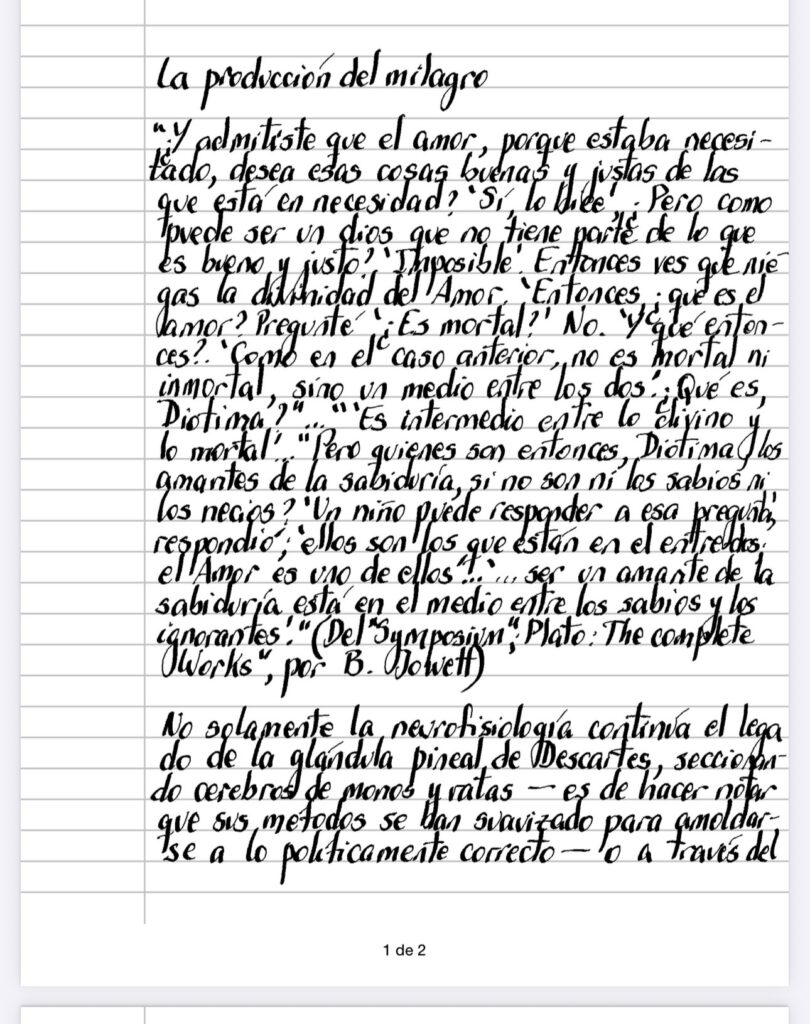 La producción del milagro
"¿Y admitiste que el amor, porque estaba necesi-
tado, desea esas cosas buenas y justas de las
que está en necesidad? 'Sí, lo hice'. ¿Pero como
puede ser un dios que no tiene parte de lo que
es bueno y justo? 'Imposible'. Entonces ves que nie-
gas la divinidad del Amor. 'Entonces ¿qué es el
amor? Pregunté '¿Es mortal?' No. 'Y qué enton-
ces?. 'Como en el caso anterior, no es mortal ni
inmortal, sino un medio entre los dos'. ¿Qué es,
Diotima?"..."'Es intermedio entre lo divino y
lo mortal'..."Pero quienes son entonces, Diotima, los
amantes de la sabiduría, si no son ni los sabios ni
los necios? 'Un niño puede responder a esa pregunta',
respondió; 'ellos son los que están en el entre dos:
el Amor es uno de ellos"..."...ser un amante de la
sabiduría está en el medio entre los sabios y los
ignorantes'."(Del "Symposium", Plato: The complete
Works", por B. Jowett)
No solamente la neurofisiología continúa el lega
do de la glándula pineal de Descartes, secciónan-
do cerebros de monos y ratas — es de hacer notar
que sus métodos se han suavizado para amoldar-
se a lo políticamente correcto — o a través del
1 de 2